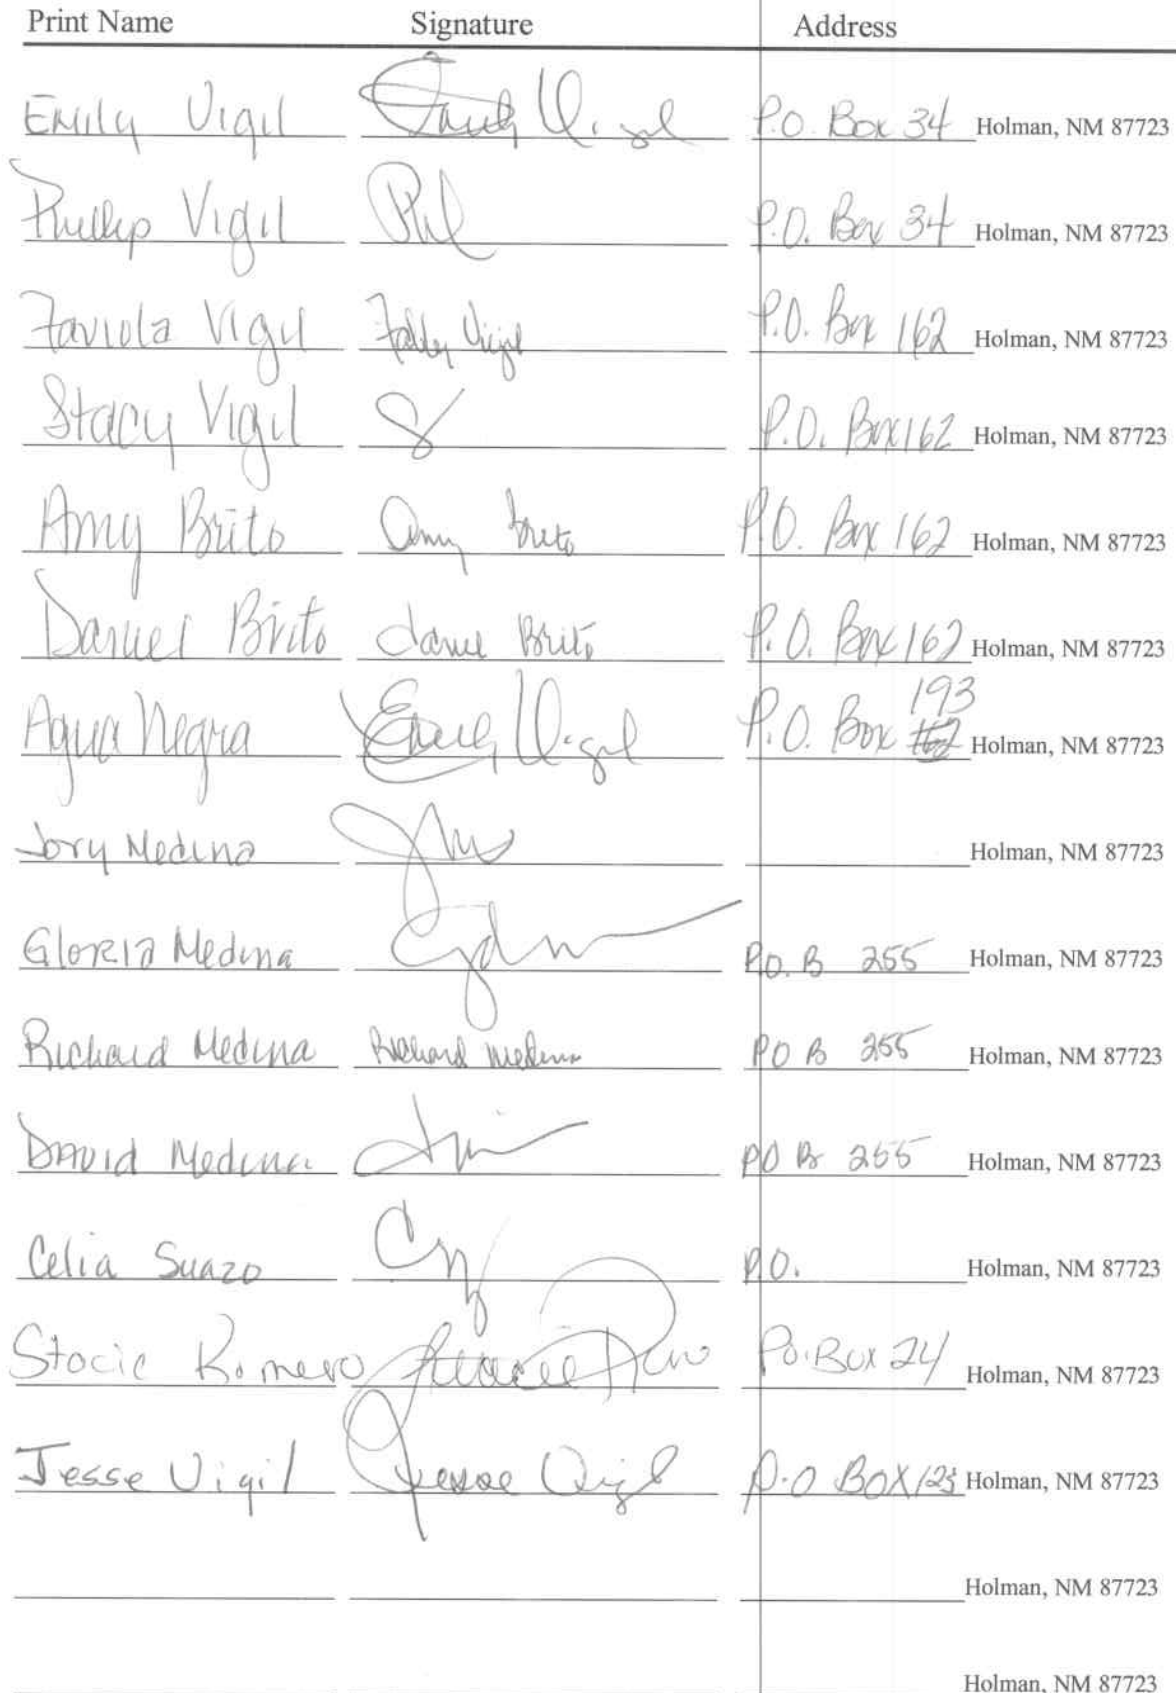 Print Name Signature Address
Emily Vigil Emily Vigil P.O. Box 34 Holman, NM 87723
Phillip Vigil P.O. Box 34 Holman, NM 87723
Faviola Vigil Fabby Vigil P.O. Box 162 Holman, NM 87723
Stacy Vigil S P.O. Box 162 Holman, NM 87723
Amy Brito Amy Brito P.O. Box 162 Holman, NM 87723
Daniel Brito Daniel Brito P.O. Box 162 Holman, NM 87723
Agua Negra Emily Vigil P.O. Box 193 Holman, NM 87723
Jory Medina Holman, NM 87723
Gloria Medina P.O. B 255 Holman, NM 87723
Richard Medina Richard Medina PO B 255 Holman, NM 87723
David Medina PO B 255 Holman, NM 87723
Celia Suazo P.O. Holman, NM 87723
Stacie Romero P.O. Box 24 Holman, NM 87723
Jesse Vigil Jesse Vigil P.O BOX 123 Holman, NM 87723
Holman, NM 87723
Holman, NM 87723